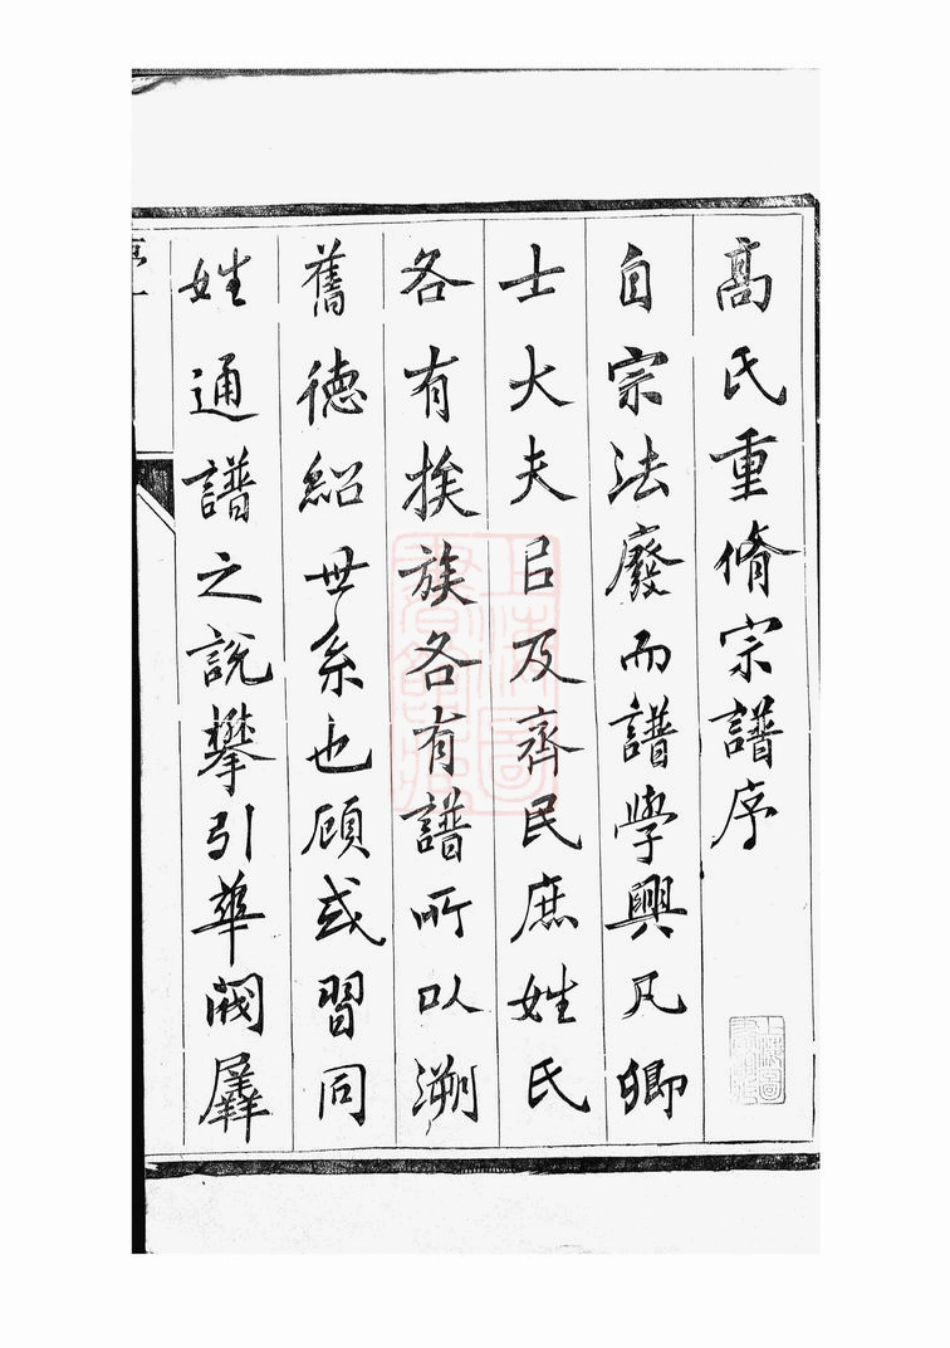 高氏重脩宗譜序
自宗法廢而譜學興凡卿
士大夫㠯及齊民庶姓氏
各有挨族各有譜所以溯
舊德紹世系也顧或習同
姓通譜之說攀引華閥羼
上海圖書館藏